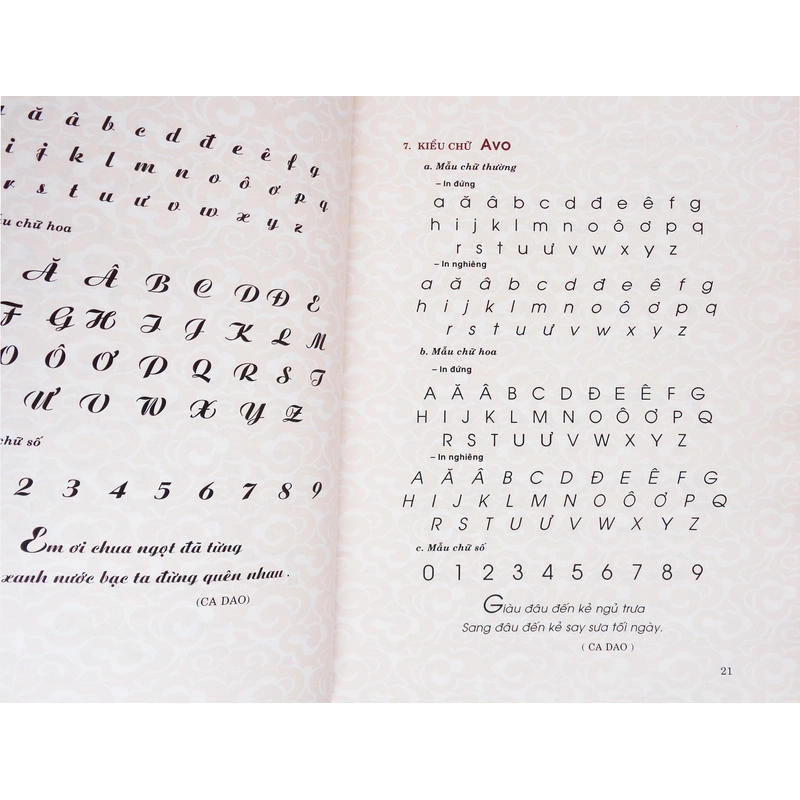 ă â b c d đ e ê f g
i j k l m n o ô ơ p q
r s t u ư v w x y z
chữ hoa
Ă Â B C D Đ E
F G H I J K L M
O Ô Ơ P Q R S T
Ư V W X Y Z
chữ số
2 3 4 5 6 7 8 9
Em ơi chua ngọt đã từng
xanh nước bạc ta đừng quên nhau.
(CA DAO)
7. KIỂU CHỮ Avo
a. Mẫu chữ thường
– In đứng
a ă â b c d đ e ê f g
h i j k l m n o ô ơ p q
r s t u ư v w x y z
– In nghiêng
a ă â b c d đ e ê f g
h i j k l m n o ô ơ p q
r s t u ư v w x y z
b. Mẫu chữ hoa
– In đứng
A Ă Â B C D Đ E Ê F G
H I J K L M N O Ô Ơ P Q
R S T U Ư V W X Y Z
– In nghiêng
A Ă Â B C D Đ E Ê F G
H I J K L M N O Ô Ơ P Q
R S T U Ư V W X Y Z
c. Mẫu chữ số
0 1 2 3 4 5 6 7 8 9
Giàu đâu đến kẻ ngủ trưa
Sang đâu đến kẻ say sưa tối ngày.
( CA DAO )
21